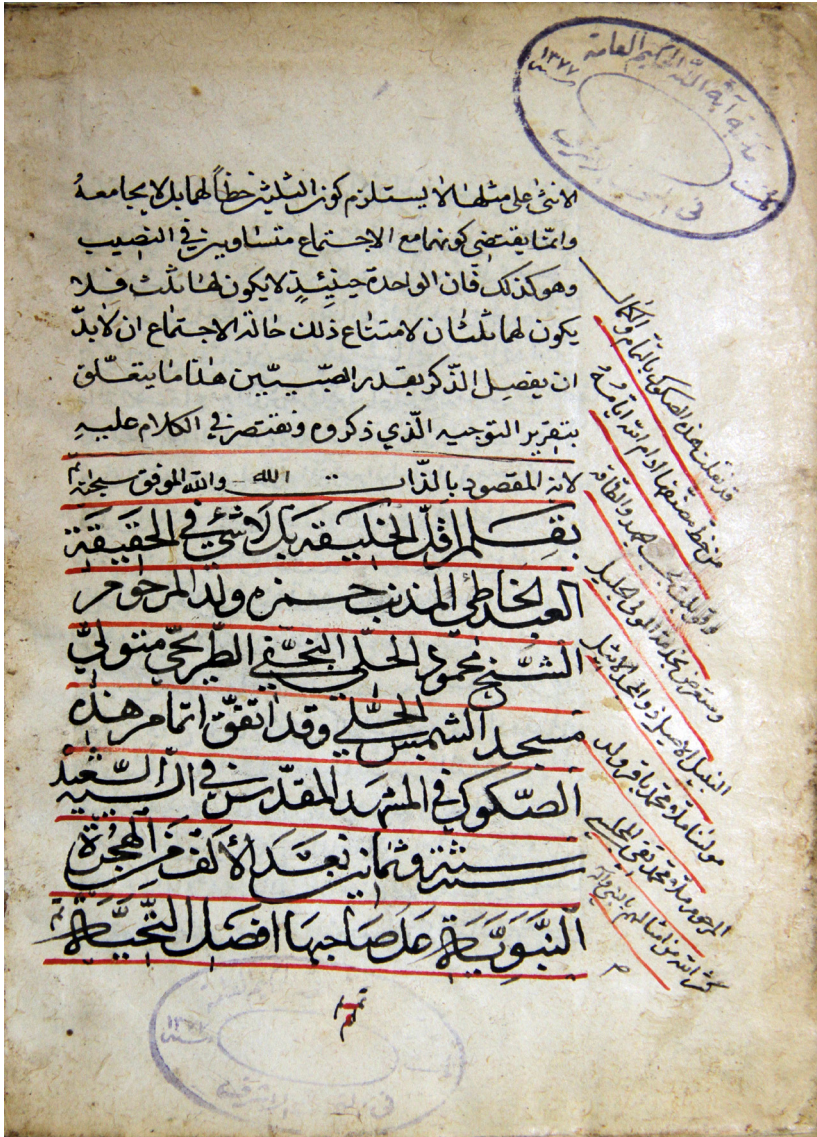 مكتبة آية الله الحكيم العامة
١٣٧٧
في النجف الاشرف
الانثى على مثلها لا يستلزم كون الثلثين حظاً لهما بل لا يجامعه
وانما يقتضي كونهما مع الاجتماع متساويين في النصيب
وهو كذلك فان الواحدة حينئذٍ لا يكون لها ثلث فلا
يكون لهما ثلثان لامتناع ذلك حالة الاجتماع ان لا بدّ
ان يفضل الذكر بقدر الصبيتين هذا ما يتعلّق
بتقرير التوجيه الّذي ذكروه ونقتصر في الكلام عليه
لانه المقصود بالذات والله الموفق سبحانه
بقلم اقلّ الخليقة بل لا شئ في الحقيقة
العبد الخاطئ المذنب حمزه ولد المرحوم
الشيخ محمود الحلّي النجفي الطريحي متولي
مسجد الشمس الحلي وقد اتفق اتمام هذه
الصكوك في المشهد المقدس في السنة السعيد
ستة وثمانين بعد الألف من الهجرة
النبوية على صاحبها افضل التحية
قد نقلت هذه الصكوك بالتمام والكمال
من خط مصنفها ادام الله ايامه
وقوبلت بحسب جهد والطاقه
وستعرض بخدمة المولى الجليل
النبيل الاصيل ذو المجد الاثيل
مولانا ملا محمد باقر ولد
المرحوم ملا محمد تقي المجلسي
كثر الله من امثالهم بالنبي وآله